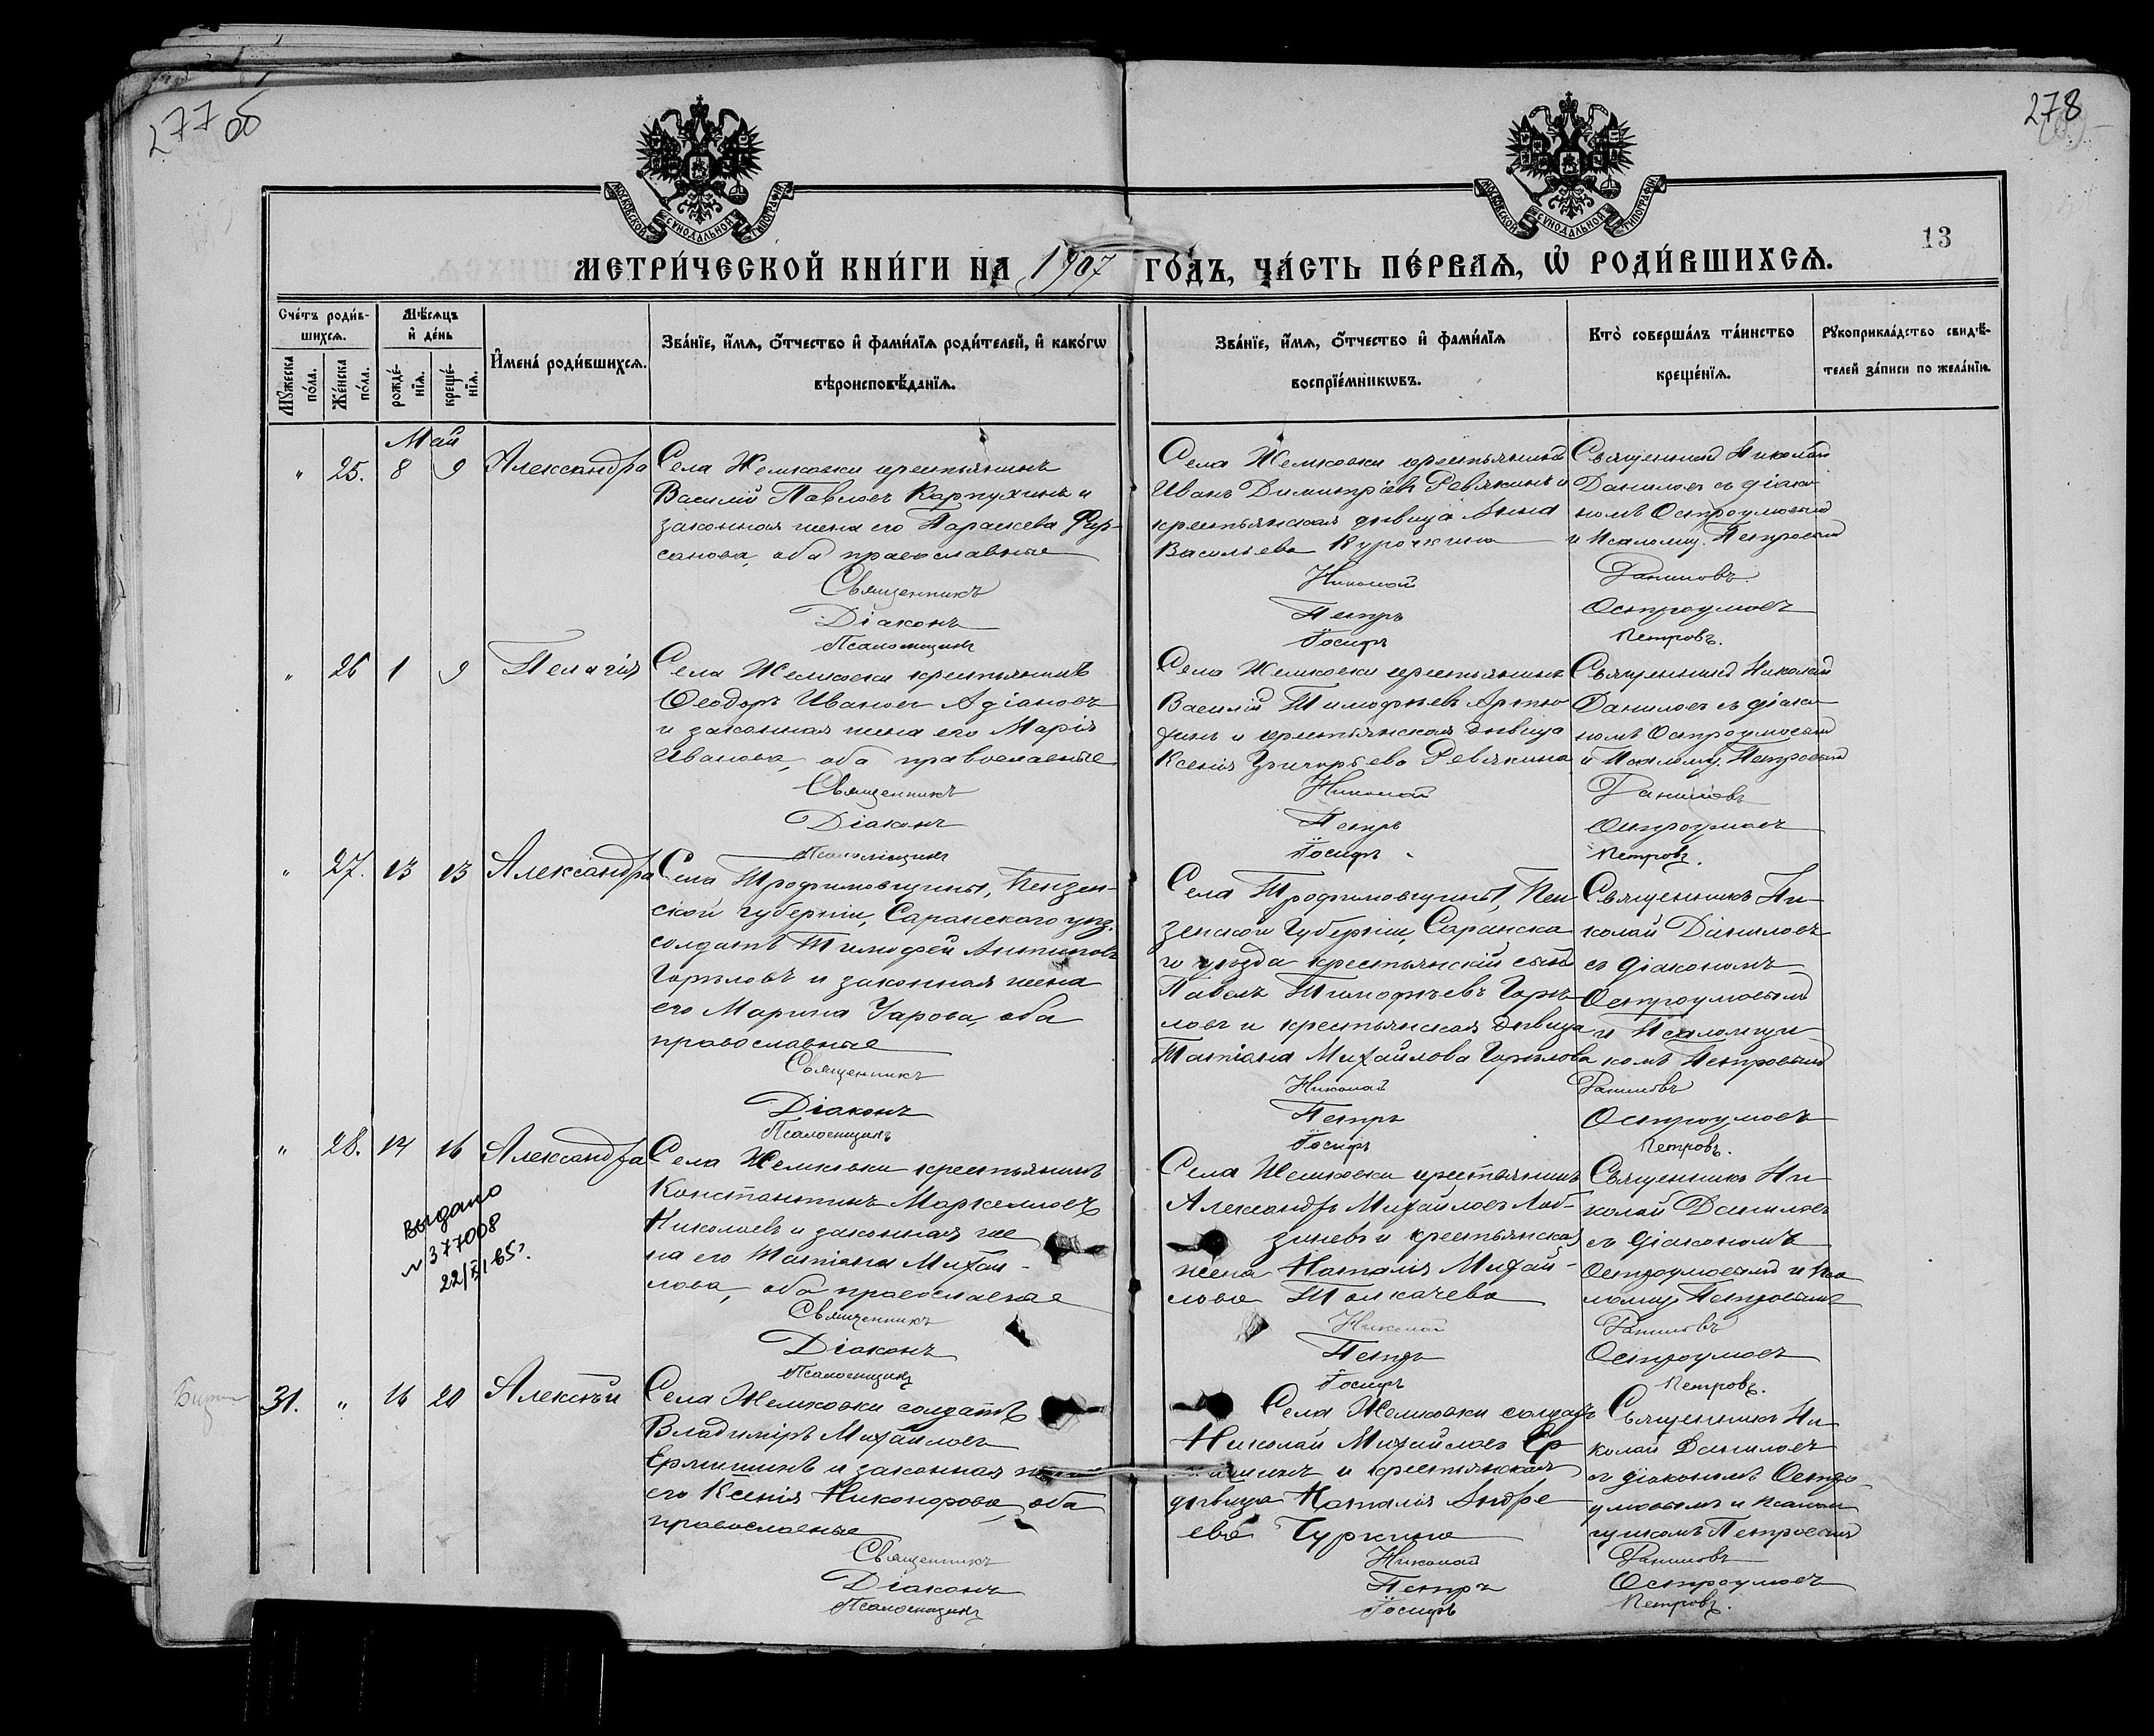 277 об
278
13
МОСКОВСКОЙ СУНОДАЛЬНОЙ ТИПОГРАФІИ
МОСКОВСКОЙ СУНОДАЛЬНОЙ ТИПОГРАФІИ
МЕТРИ́ЧЕСКОЙ КНИ́ГИ НА 1907 ГО́ДЪ, ЧА́СТЬ ПЕ́РВАѦ, Ѡ҆ РОДИ́ВШИХСѦ.
Сче́тъ роди́в-
шихсѧ.
Мѣ́сѧцъ
и҆ де́нь
Мꙋ́жеска по́ла.
Же́нска по́ла.
рожде́-нїѧ.
креще́-нїѧ.
И҆мена̀ роди́вшихсѧ.
Зва́нїе, и҆́мѧ, ѻ҆́тчество и҆ фами́лїѧ роди́телей, и҆ како́гѡ
вѣроисповѣ́данїѧ.
Зва́нїе, и҆́мѧ, ѻ҆́тчество и҆ фами́лїѧ
воспрїе́мникѡвъ.
Кто̀ соверша́лъ та́инство
креще́нїѧ.
Рꙋкоприкла́дство свидѣ́-
телей за́писи по жела́нїю.
Май
" 25. 8 9 Александра
Села Жемковки крестьянинъ
Василій Павловъ Карпухинъ и
законная жена его Параскева Фир-
санова, оба православные
Священникъ
Діаконъ
Псаломщикъ
Села Жемковки крестьянинъ
Иванъ Димитріевъ Ревякинъ и
крестьянская дѣвица Анна
Васильева Курочкина
Николай
Петръ
Іосифъ
Священникъ Николай
Даниловъ съ діако-
номъ Остроумовымъ
и Псаломщ. Петровымъ
Даниловъ
Остроумовъ
Петровъ.
" 26 1 9 Пелагія
Села Жемковки крестьянинъ
Ѳеодоръ Ивановъ Адіановъ
и законная жена его Марія
Иванова, оба православные
Священникъ
Діаконъ
Псаломщикъ
Села Жемковки крестьянинъ
Василій Тимофѣевъ Артю-
и крестьянская дѣвица
Ксенія Григорьева Ревякина
Николай
Петръ
Іосифъ
Священникъ Николай
Даниловъ съ діако-
номъ Остроумовымъ
и Псаломщ. Петровымъ
Даниловъ
Остроумовъ
Петровъ.
" 27. 13 13 Александра
Села Трофимовщины, Пензен-
ской губерніи, Саранскаго уѣзд.
солдатъ Тимофей Антиповъ
Горѣловъ и законная жена
его Марина Уарова, оба
православные
Священникъ
Діаконъ
Псаломщикъ
Села Трофимовщины, Пен-
зенской Губерніи, Саранска-
го уѣзда крестьянскій сынъ
Павелъ Тимофѣевъ Горѣ-
ловъ и крестьянская дѣвица
Татіана Михайлова Горѣлова
Николай
Петръ
Іосифъ
Священникъ Ни-
колай Даниловъ
съ діакономъ
Остроумовымъ
и Псаломщи-
комъ Петровымъ
Даниловъ
Остроумовъ
Петровъ.
" 28. 14 16 Александра
Выдано
№ 377008
22/XI 65 г.
Села Жемковки крестьянинъ
Константинъ Маркелловъ
Николаевъ и законная же-
на его Татіана Михаи-
лова, оба православные
Священникъ
Діаконъ
Псаломщикъ
Села Жемковки крестьянинъ
Александръ Михайловъ Лоб-
зиневъ и крестьянская
жена Наталія Михай-
лова Толкачева
Николай
Петръ
Іосифъ
Священникъ Ни-
колай Даниловъ
съ діакономъ
Остроумовымъ и Пса-
ломщ. Петровымъ
Даниловъ
Остроумовъ
Петровъ.
31. " 16 20 Алексѣй
Села Жемковки солдатъ
Владиміръ Михайловъ
Ермишинъ и законная
его Ксенія Никонорова, оба
православные
Священникъ
Діаконъ
Псаломщикъ
Села Жемковки солдатъ
Николай Михайловъ Ер-
мишинъ и крестьянская
дѣвица Наталія Андре-
ева Чуркина
Николай
Петръ
Іосифъ
Священникъ Ни-
колай Даниловъ
съ діакономъ Остро-
умовымъ и псалом-
щикомъ Петровымъ
Даниловъ
Остроумовъ
Петровъ.